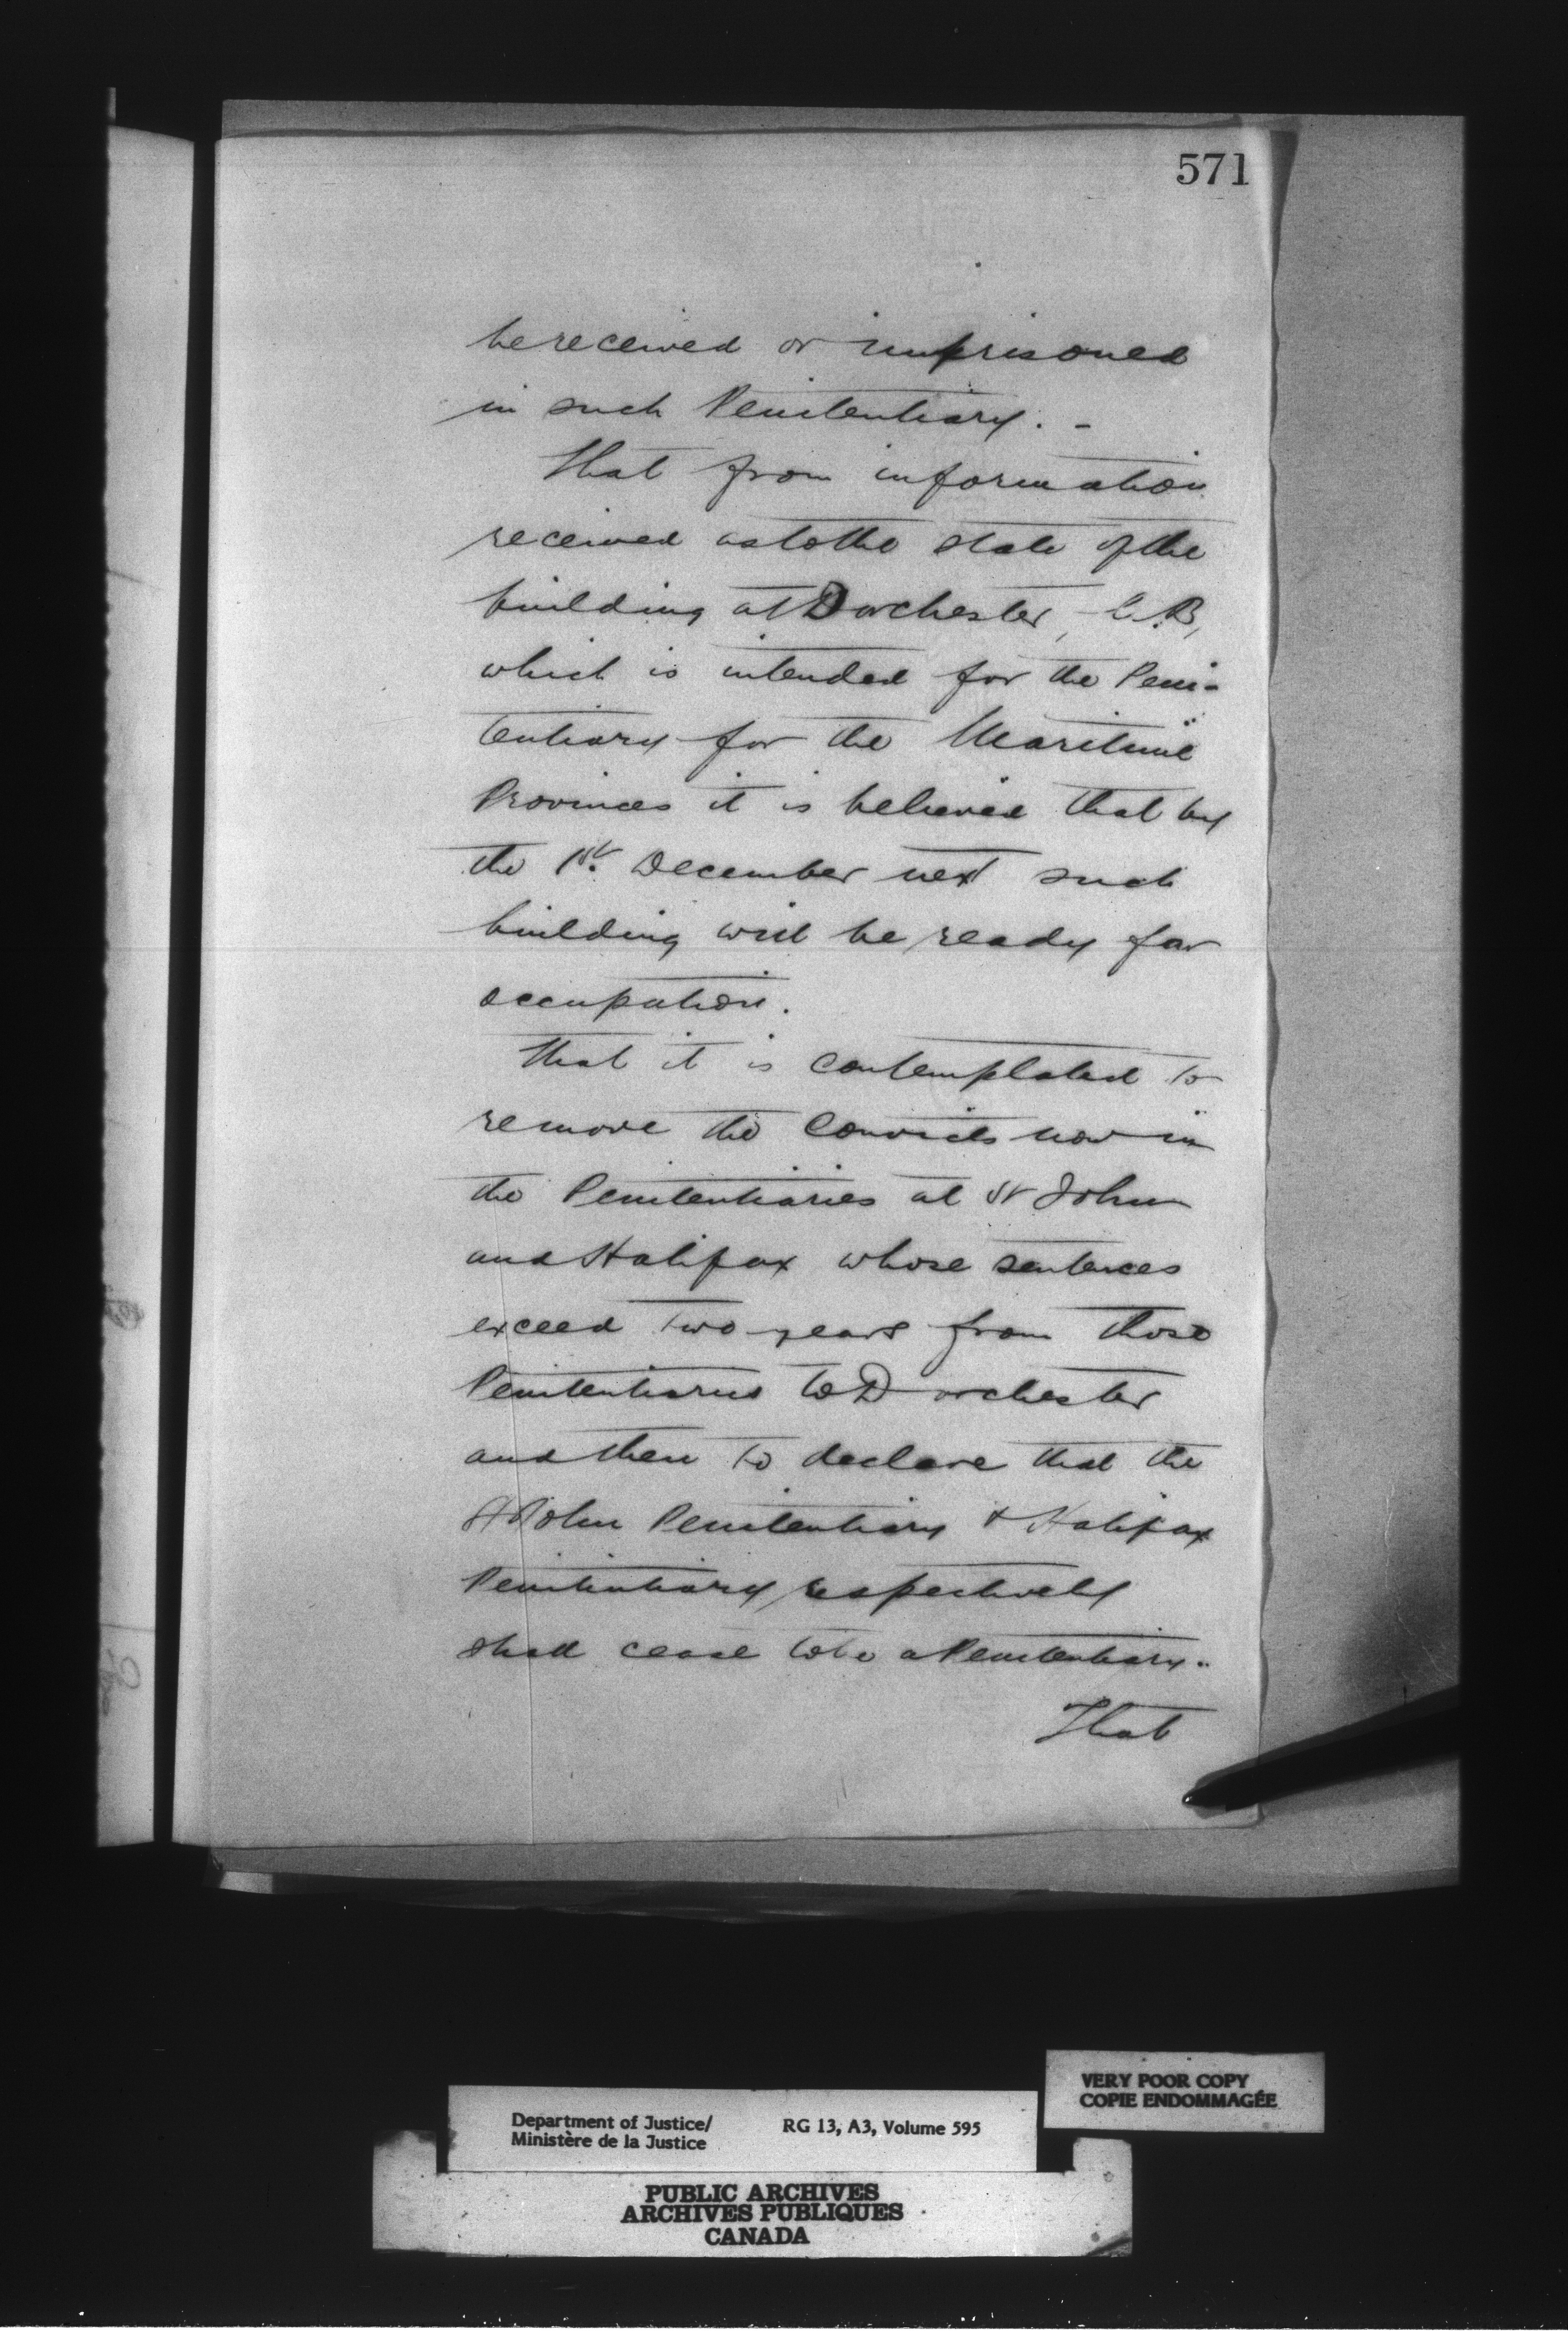 571
be received or imprisoned
in such Penitentiary. -
That from information
received as to the state of the
building at Dorchester,
which is intended for the Peni-
tentiary for the Maritime
Provinces it is believed that by
the 1st. December next such
building will be ready for
occupation.
That it is contemplated to
remove the Convicts now in
the Penitentiaries at St John
and Halifax whose sentences
exceed two years from those
Penitentiaries to Dorchester
and then to declare that the
St John Penitentiary & Halifax
Penitentiary respectively
shall cease to be a Penitentiary.
That
VERY POOR COPY
COPIE ENDOMMAGÉE
Department of Justice/ RG 13, A3, Volume 595
Ministère de la Justice
PUBLIC ARCHIVES
ARCHIVES PUBLIQUES
CANADA